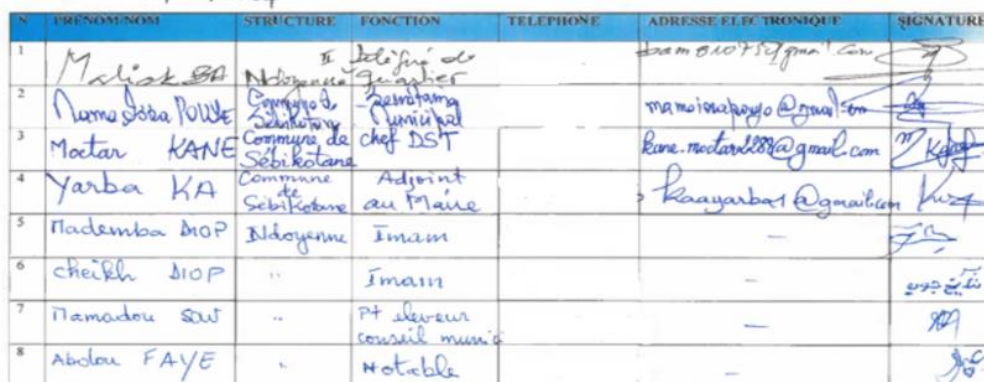 N PRENOM/NOM STRUCTURE FONCTION TELEPHONE ADRESSE ELECTRONIQUE SIGNATURE
1 Malick BA Ndoyenne II Délégué de quartier
2 Commune de Sébikotane Secrétaire Municipal
3 Moctar KANE Commune de Sébikotane chef DST
4 Yarba KA Commune de Sébikotane Adjoint au Maire kaayarba1@gmail.com
5 Mademba DIOP Ndoyenne Imam -
6 Cheikh DIOP " Imam -
7 Mamadou SOW " Pt eleveur conseil munic -
8 Abdou FAYE " Notable -